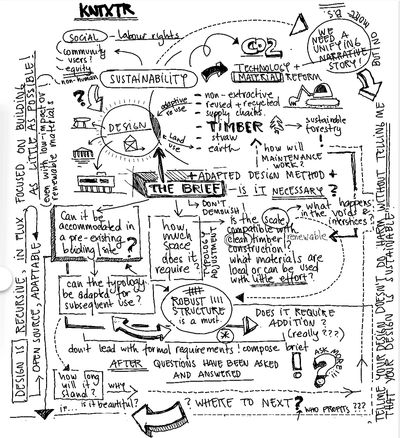 KNTXTR
MORE P.I.S
BUT NO
WE NEED A UNIFYING NARRATIVE STORY!
SOCIAL - Labour rights
community
users?
equity
non-human
SUSTAINABILITY
CO2
TECHNOLOGY +
MATERIAL REFORM
DESIGN
adaptive re use
land use
- non-extractive
- reused + recycled
- supply chains
- TIMBER
- straw
- earth
sustainable
forestry
!
how will
MAINTENANCE
WORK?
THE BRIEF
+ ADAPTED DESIGN METHOD +
- IS IT NECESSARY?
DON'T
DEMOLISH
TYPOLOGY
ADJUSTMENT
Can it be
accommodated
in a
pre-existing
building/site
?
how
much
space
does it
require?
Is the scale
compatible with
clean timber renewable
construction?
what materials are
local or can be used
with little effort?
what happens
in the voids +
interstices?
can the typology
be adapted for
subsequent use?
ROBUST !!!!
STRUCTURE
is a must
DOES IT REQUIRE
ADDITION?
(really???)
don't lead with formal requirements! compose brief
AFTER QUESTIONS HAVE BEEN ASKED
AND ANSWERED
ASK MORE!
how long
will it
stand?
WHY
is it beautiful?
? WHERE TO NEXT?
WHO PROFITS ???
DESIGN IS RECURSIVE, IN FLUX
OPEN SOURCE, ADAPTABLE
FOCUSED ON BUILDING
AS LITTLE AS POSSIBLE!
even with low-impact +
renewable materials
TELL ME YOUR DESIGN DOESN'T DO WHAT WITHOUT TELLING ME
THAT YOUR DESIGN IS SUSTAINABLE